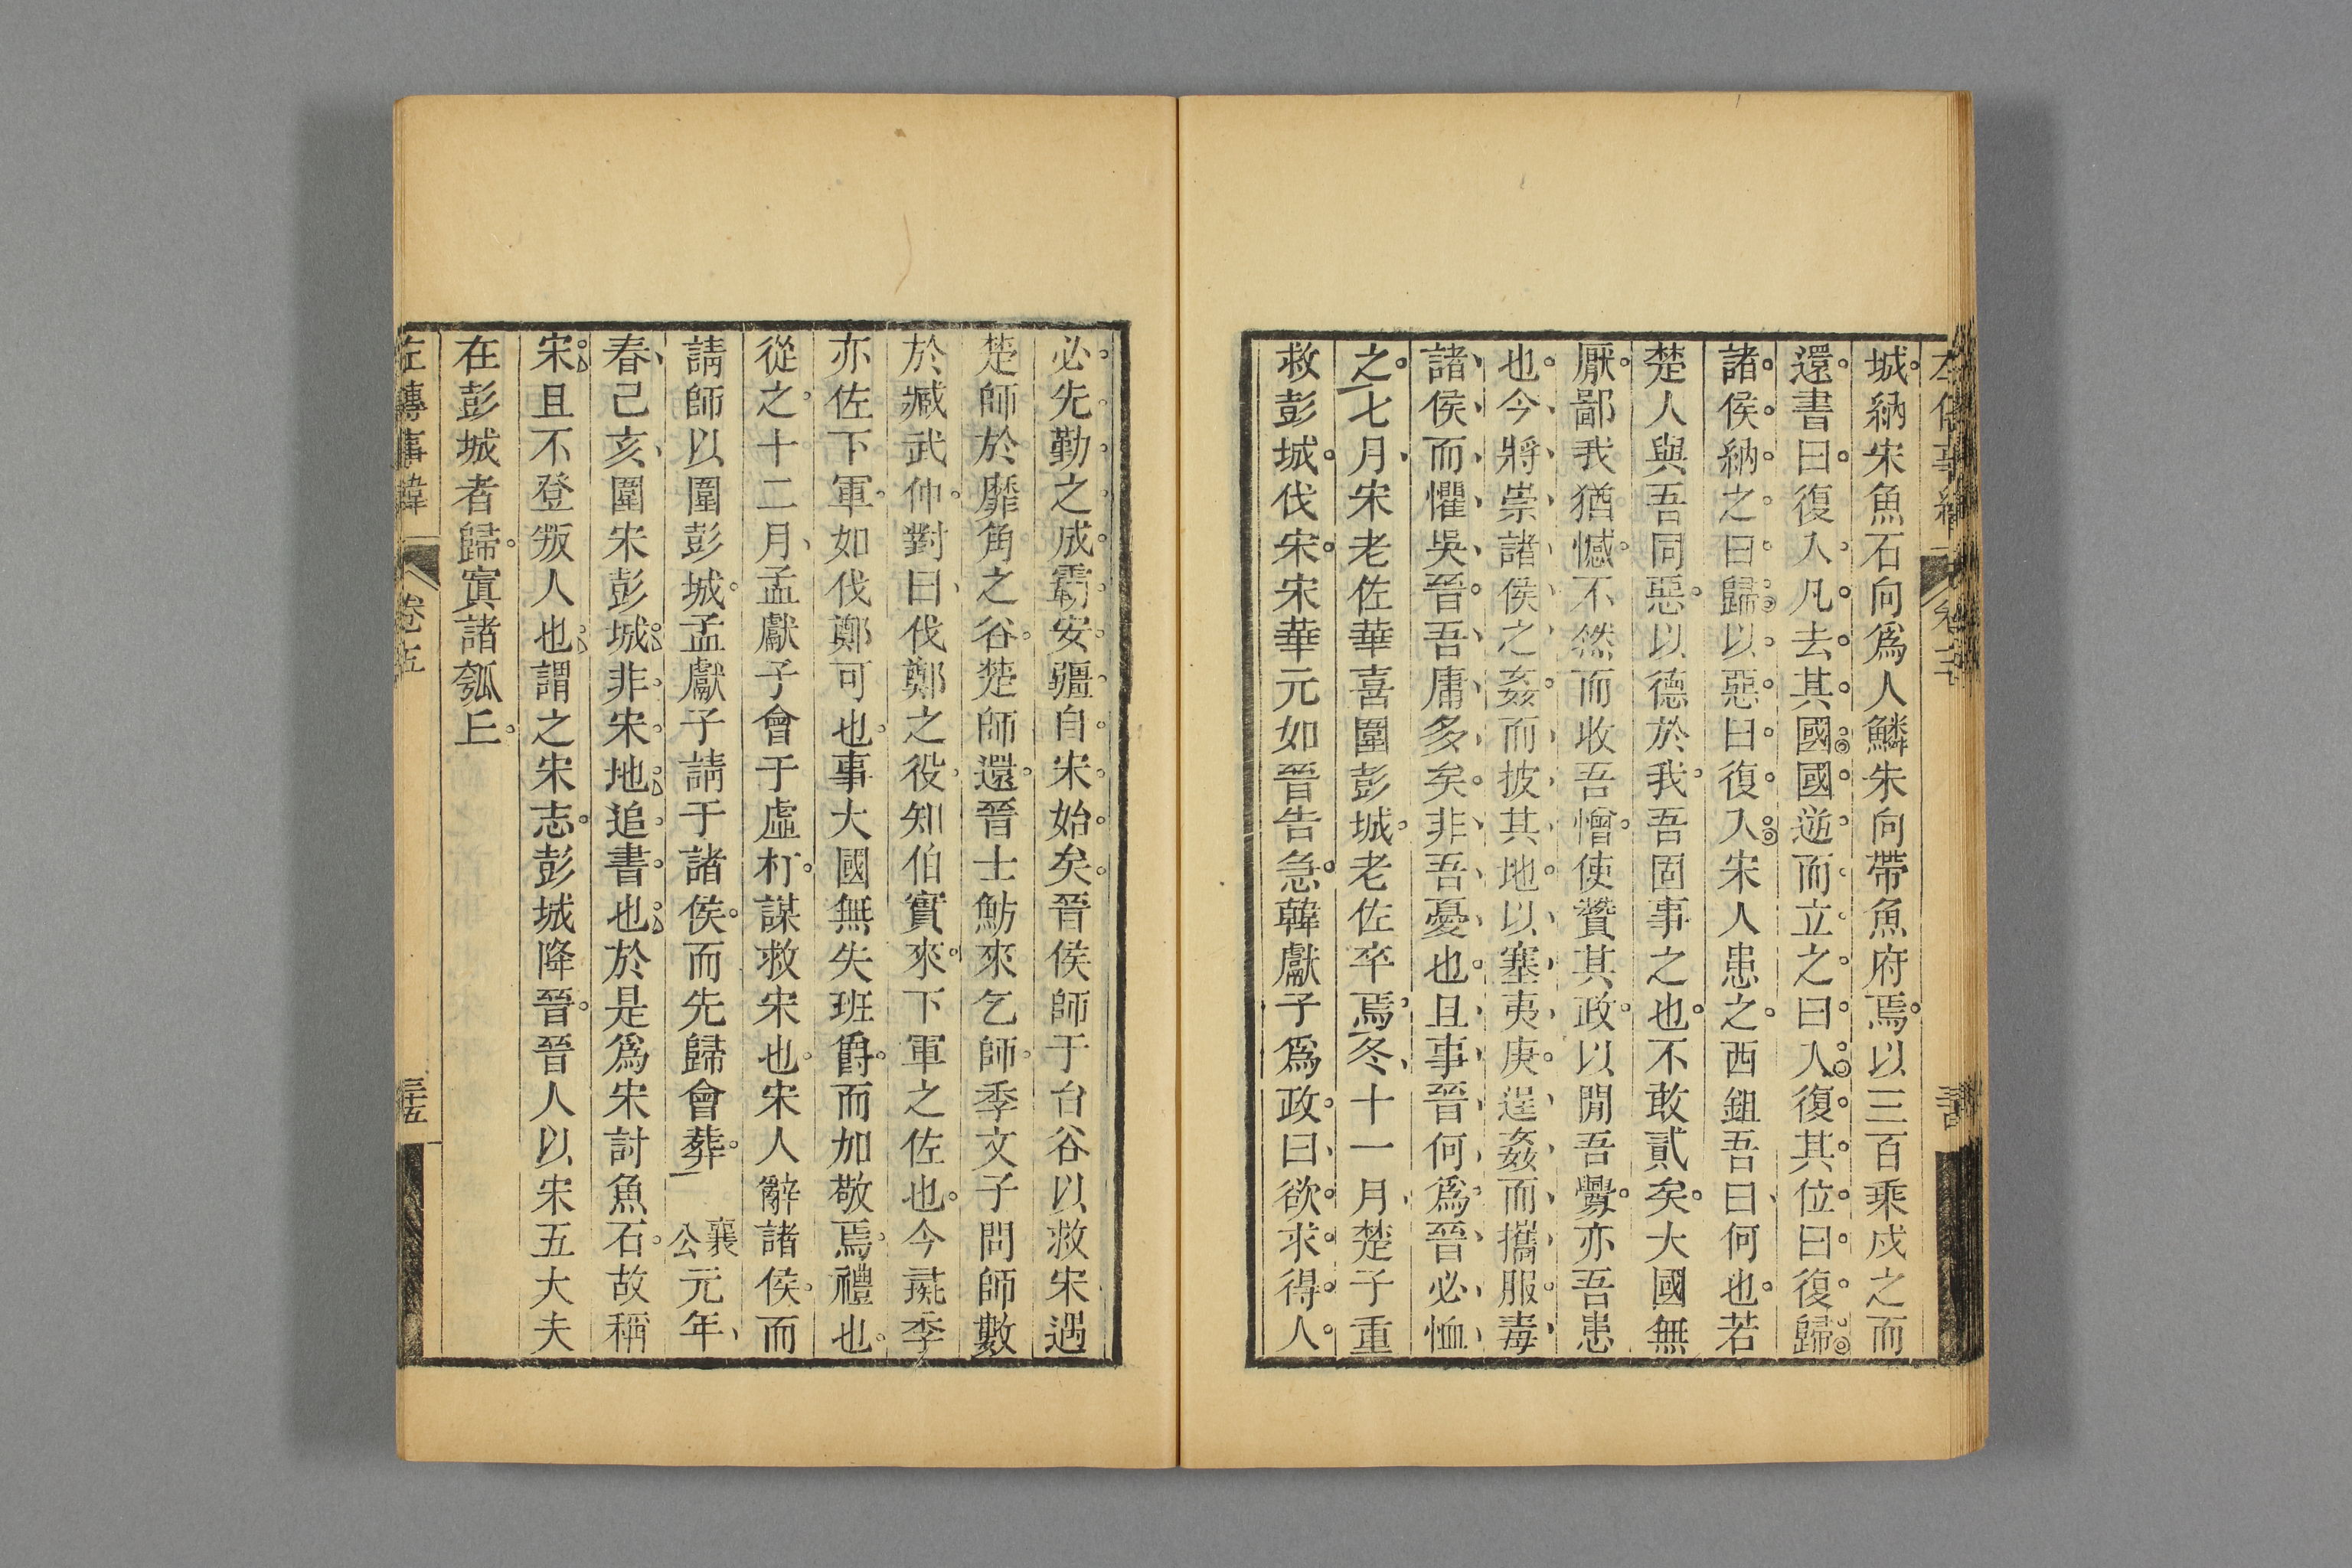 城納宋魚石向爲人鱗朱向帶魚府焉以三百乘戍之而
還書曰復入凡去其國國逆而立之曰入復其位曰復歸
諸侯納之曰歸以惡曰復入宋人患之西鉏吾曰何也若
楚人與吾同惡以德於我吾固事之也不敢貳矣大國無
厭鄙我猶憾不然而收吾憎使贊其政以閒吾釁亦吾患
也今將崇諸侯之姦而披其地以塞夷庚逞姦而攜服毒
諸侯而懼吳晉吾庸多矣非吾憂也且事晉何爲晉必恤
之七月宋老佐華喜圍彭城老佐卒焉冬十一月楚子重
救彭城伐宋宋華元如晉告急韓獻子爲政曰欲求得人
必先勤之成霸安疆自宋始矣晉侯師于台谷以救宋遇
楚師於靡角之谷楚師還晉士魴來乞師季文子問師數
於臧武仲對曰伐鄭之役知伯實來下軍之佐也今彘季
亦佐下軍如伐鄭可也事大國無失班爵而加敬焉禮也
從之十二月孟獻子會于虛朾謀救宋也宋人辭諸侯而
請師以圍彭城孟獻子請于諸侯而先歸會葬襄公元年
春己亥圍宋彭城非宋地追書也於是爲宋討魚石故稱
宋且不登叛人也謂之宋志彭城降晉晉人以宋五大夫
在彭城者歸寘諸瓠丘
左傳事緯 卷五 三五